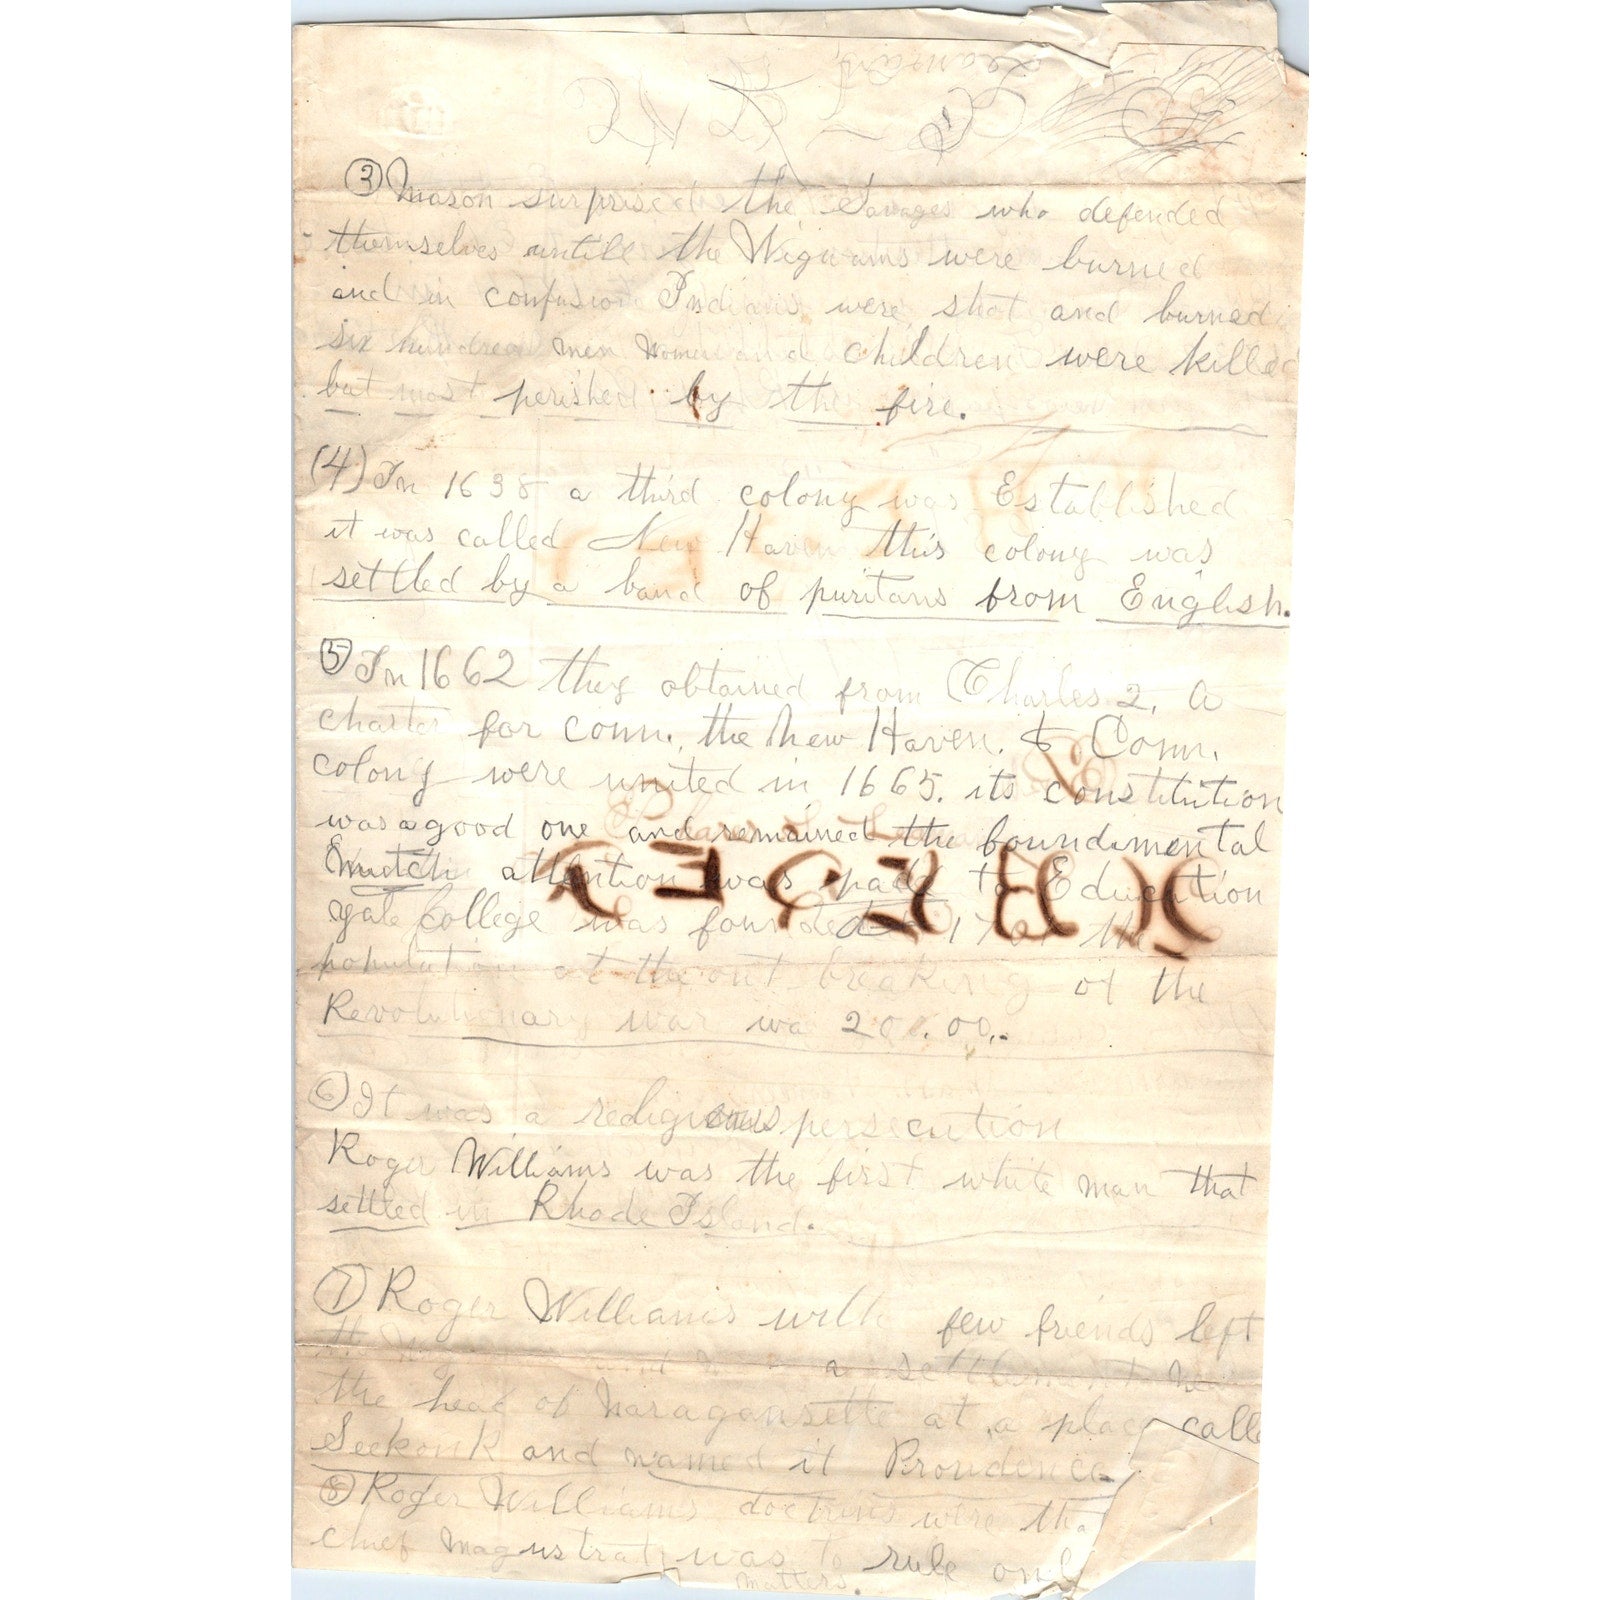 ③ Mason surprised the Savages who defended
themselves untill the Wigwams were burned
and in confusion Indians were shot and burned
six hundred men women and children were killed
but most perished by the fire.
(4) In 1638 a third colony was Established
it was called New Haven this colony was
settled by a band of puritans from English.
⑤ In 1662 they obtained from Charles 2. a
charter for conn., the New Haven. & Conn.
colony were united in 1665. its constitution
was a good one and remained the foundamental
Mutch attention was paid to Education
Yale College was founded 1701 the
population at the out breaking of the
Revolutionary war wa 200.00..
⑥ It was a redigious persecution
Roger Williams was the first white man that
settled in Rhode Island.
⑦ Roger Williams with few friends left
a settlement
the head of Naragansette at a place calle
Seekonk and named it Providence
⑧ Roger Williams doctrins were tha
chief magustrate was to rule only
matters.